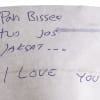 Pan Bissee
tus jos
I LOVE YOU